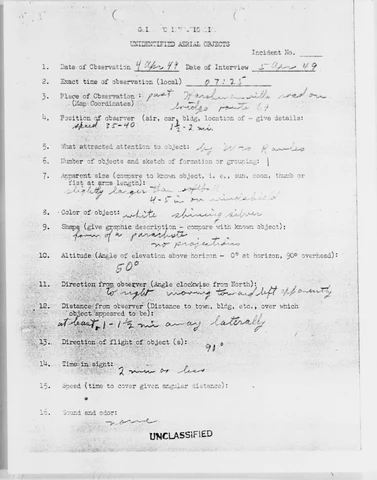 UNIDENTIFIED AERIAL OBJECTS
Incident No.
1. Date of Observation 4 Apr 49 Date of Interview 5 Apr 49
2. Exact time of observation (local) 0725
3. Place of Observation: past road on
(Map Coordinates) bridge route
4. Position of observer (air, car, bldg, location of - give details:
speed 35-40 1½-2 mi.
5. What attracted attention to object: by Mrs
6. Number of objects and sketch of formation or grouping: 1
7. Apparent size (compare to known object, i. e., sun, moon, thumb or
fist at arm length):
slightly larger than
4-5 in on windshield
8. Color of object: white shining silver
9. Shape (give graphic description - compare with known object):
form of a parachute
no projections
10. Altitude (Angle of elevation above horizon - 0° at horizon, 90° overhead):
50°
11. Direction from observer (Angle clockwise from North):
to right moving toward left apparently
12. Distance from observer (Distance to town, bldg, etc., over which
object appeared to be):
at least 1-1½ mi away laterally
13. Direction of flight of object (s):
90°
14. Time in sight:
2 min or less
15. Speed (time to cover given angular distance):
16. Sound and odor:
none
UNCLASSIFIED